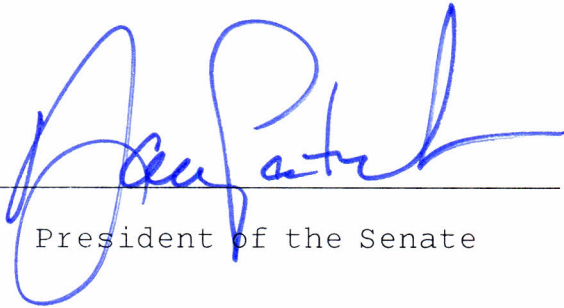 Dan Patrick
President of the Senate